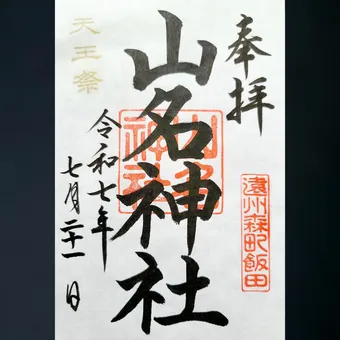 奉拝
遠州森町飯田
山名神社
山名
神社
令和七年
七月二十一日
天王祭